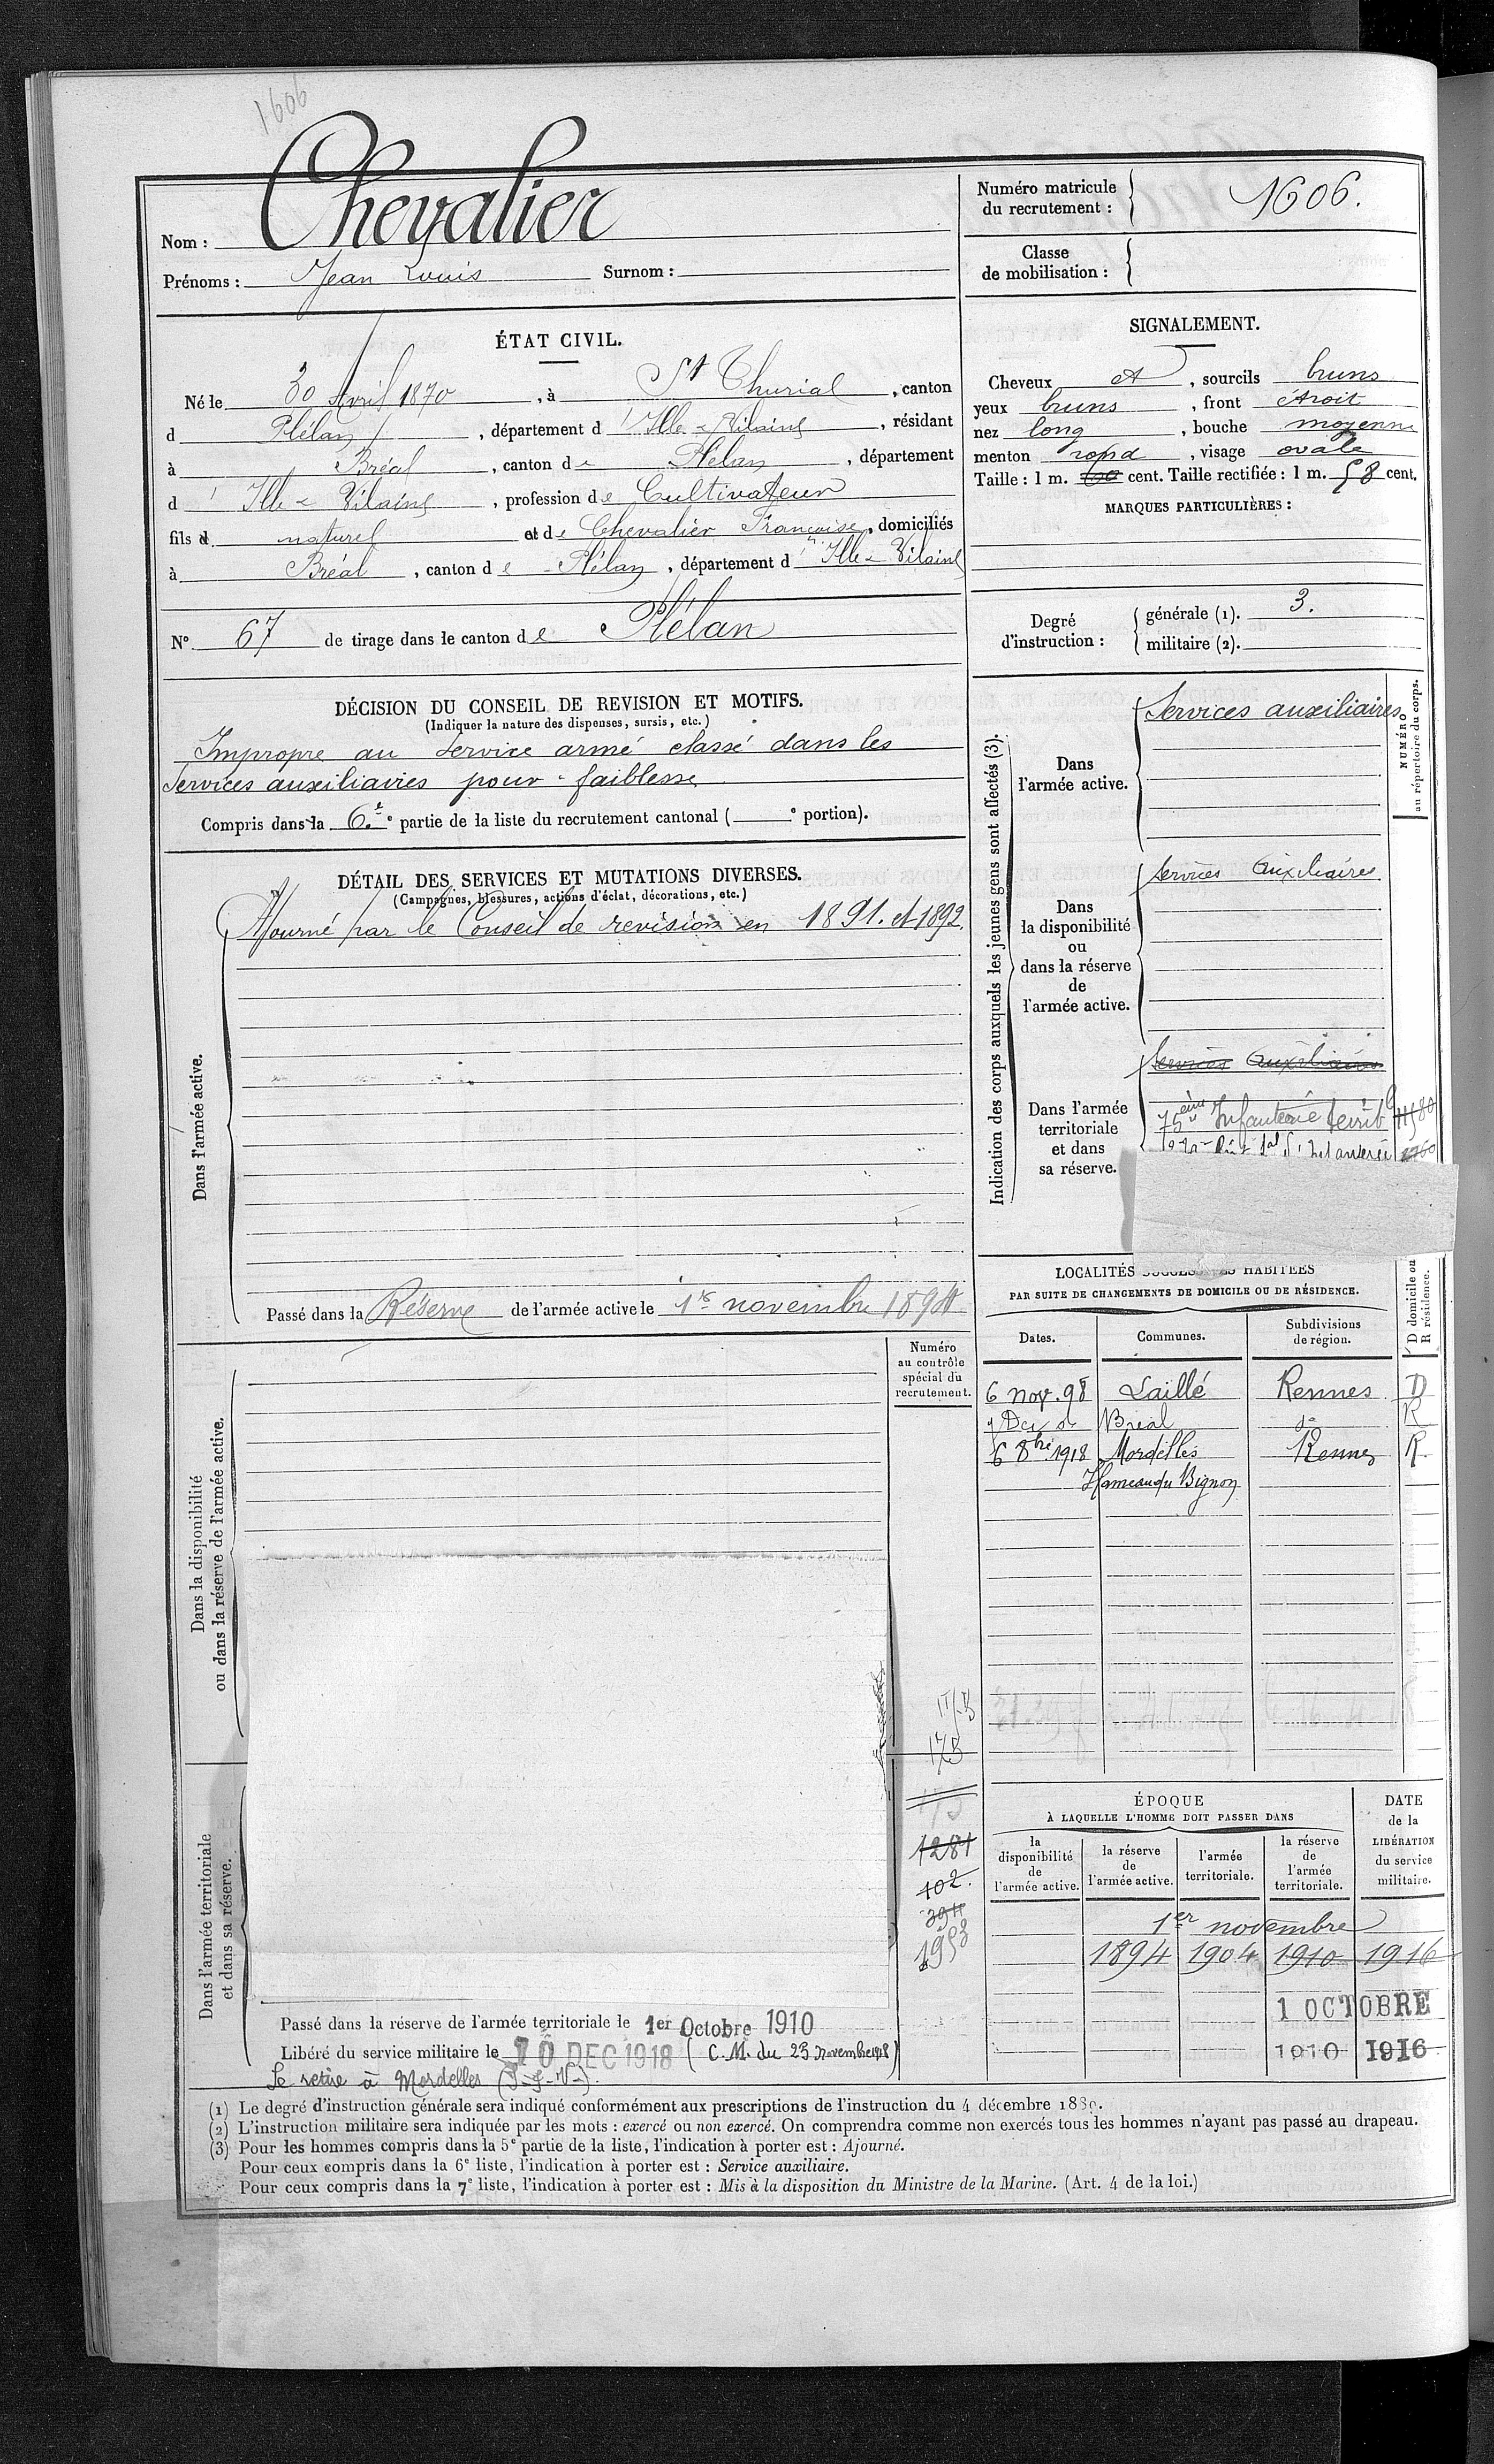 1606
Nom : Chevalier
Prénoms : Jean Louis Surnom :
Numéro matricule du recrutement : 1606.
Classe de mobilisation :
ÉTAT CIVIL.
Né le 30 Avril 1870, à St Thurial, canton
d Plélan, département d'Ille-Vilaine, résidant
à Bréal, canton de Plélan, département
d'Ille-Vilaine, profession de Cultivateur
fils d naturel et de Chevalier Françoise, domiciliés
à Bréal, canton de Plélan, département d'Ille-Vilaine
N° 67 de tirage dans le canton de Plélan
SIGNALEMENT.
Cheveux et, sourcils bruns
yeux bruns, front étroit
nez long, bouche moyenne
menton rond, visage ovale
Taille : 1 m. cent. Taille rectifiée : 1 m. 58 cent.
MARQUES PARTICULIÈRES :
Degré d'instruction :
générale (1). 3.
militaire (2).
DÉCISION DU CONSEIL DE REVISION ET MOTIFS.
(Indiquer la nature des dispenses, sursis, etc.)
Impropre au service armé classé dans les
Services auxiliaires pour faiblesse
Compris dans la 6.e partie de la liste du recrutement cantonal ( e portion).
DÉTAIL DES SERVICES ET MUTATIONS DIVERSES.
(Campagnes, blessures, actions d'éclat, décorations, etc.)
Dans l'armée active.
Ajourné par le Conseil de revision en 1891. et 1892.
Passé dans la Réserve de l'armée active le 1er novembre 1894
Indication des corps auxquels les jeunes gens sont affectés (3).
NUMÉRO au répertoire du corps.
Dans l'armée active.
Services auxiliaires
Dans la disponibilité ou dans la réserve de l'armée active.
Services Auxiliaires
Dans l'armée territoriale et dans sa réserve.
Services Auxiliaires
75ème Infanterie territ
LOCALITÉS HABITÉES
PAR SUITE DE CHANGEMENTS DE DOMICILE OU DE RÉSIDENCE.
Dates. Communes. Subdivisions de région. D domicile ou R résidence.
6 nov. 98 Laillé Rennes D
Bréal do R
6 8bre 1918 Mordelles Rennes R.
Hameau du Bignon
Numéro au contrôle spécial du recrutement.
Dans la disponibilité
ou dans la réserve de l'armée active.
175
1281
102.
394
1958
Dans l'armée territoriale
et dans sa réserve.
ÉPOQUE
À LAQUELLE L'HOMME DOIT PASSER DANS
DATE de la LIBÉRATION du service militaire.
la disponibilité de l'armée active.
la réserve de l'armée active.
l'armée territoriale.
la réserve de l'armée territoriale.
1er novembre
1894 1904 1910 1916
1 OCTOBRE
1910 1916
Passé dans la réserve de l'armée territoriale le 1er Octobre 1910
Libéré du service militaire le 10 DEC 1918 (C.M. du 23 novembre 1918)
Se retire à Mordelles (I-&-V-).
(1) Le degré d'instruction générale sera indiqué conformément aux prescriptions de l'instruction du 4 décembre 1889.
(2) L'instruction militaire sera indiquée par les mots : exercé ou non exercé. On comprendra comme non exercés tous les hommes n'ayant pas passé au drapeau.
(3) Pour les hommes compris dans la 5e partie de la liste, l'indication à porter est : Ajourné.
Pour ceux compris dans la 6e liste, l'indication à porter est : Service auxiliaire.
Pour ceux compris dans la 7e liste, l'indication à porter est : Mis à la disposition du Ministre de la Marine. (Art. 4 de la loi.)